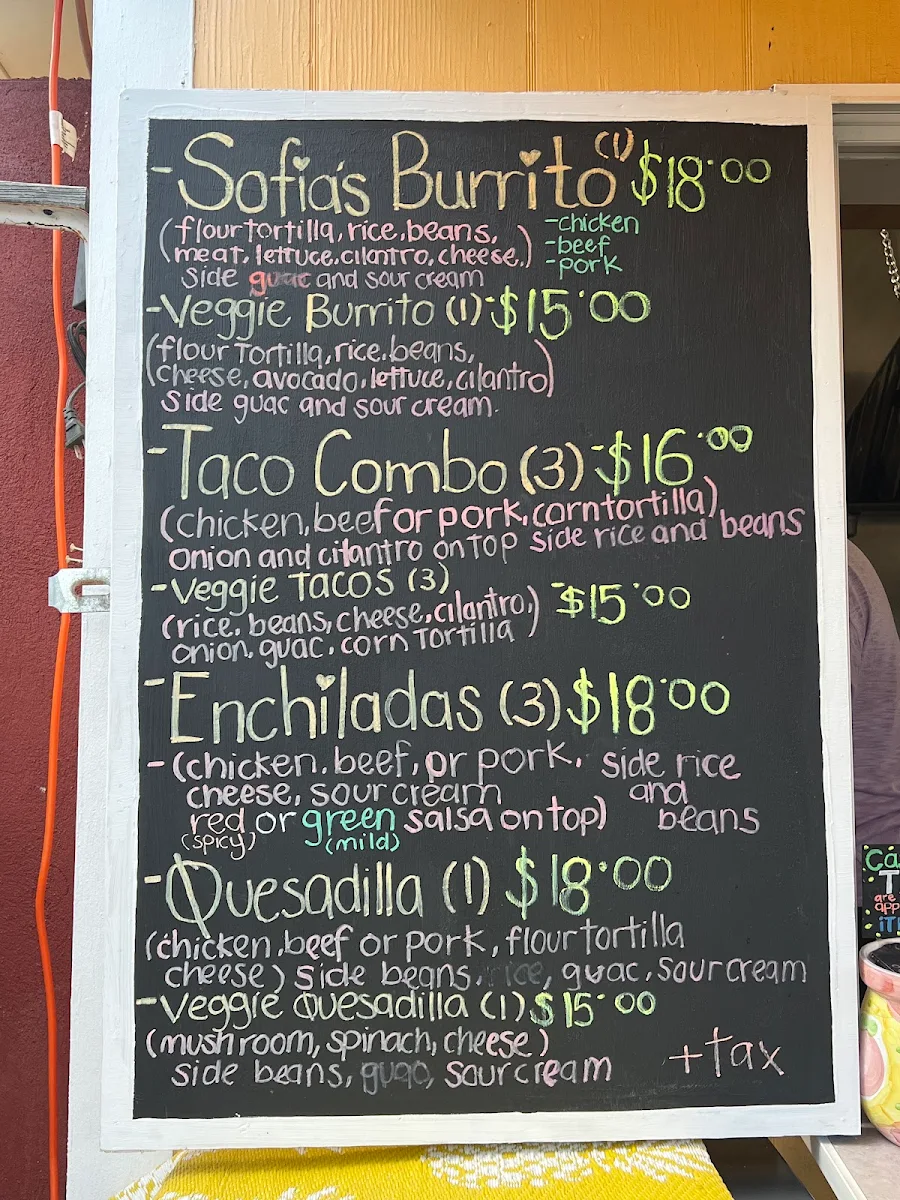 -Sofia's Burrito (1) $18.00
(flour tortilla, rice, beans,
meat, lettuce, cilantro, cheese,)
side guac and sour cream
-chicken
-beef
-pork
-Veggie Burrito (1)-$15.00
(flour Tortilla, rice, beans,
cheese, avocado, lettuce, cilantro)
side guac and sour cream.
-Taco Combo (3)-$16.00
(chicken, beef or pork, corn tortilla)
onion and cilantro on top side rice and beans
-Veggie Tacos (3)
-$15.00
(rice, beans, cheese, cilantro,)
onion, guac, corn Tortilla
-Enchiladas (3) $18.00
-(chicken, beef, or pork,
cheese, sour cream
red, or green salsa on top)
(spicy) (mild)
side rice
and
beans
-Quesadilla (1) $18.00
(chicken, beef or pork, flour tortilla
cheese) side beans, rice, guac, sour cream
-Veggie Quesadilla (1) $15.00
(mushroom, spinach, cheese)
side beans, guac, sour cream
+tax